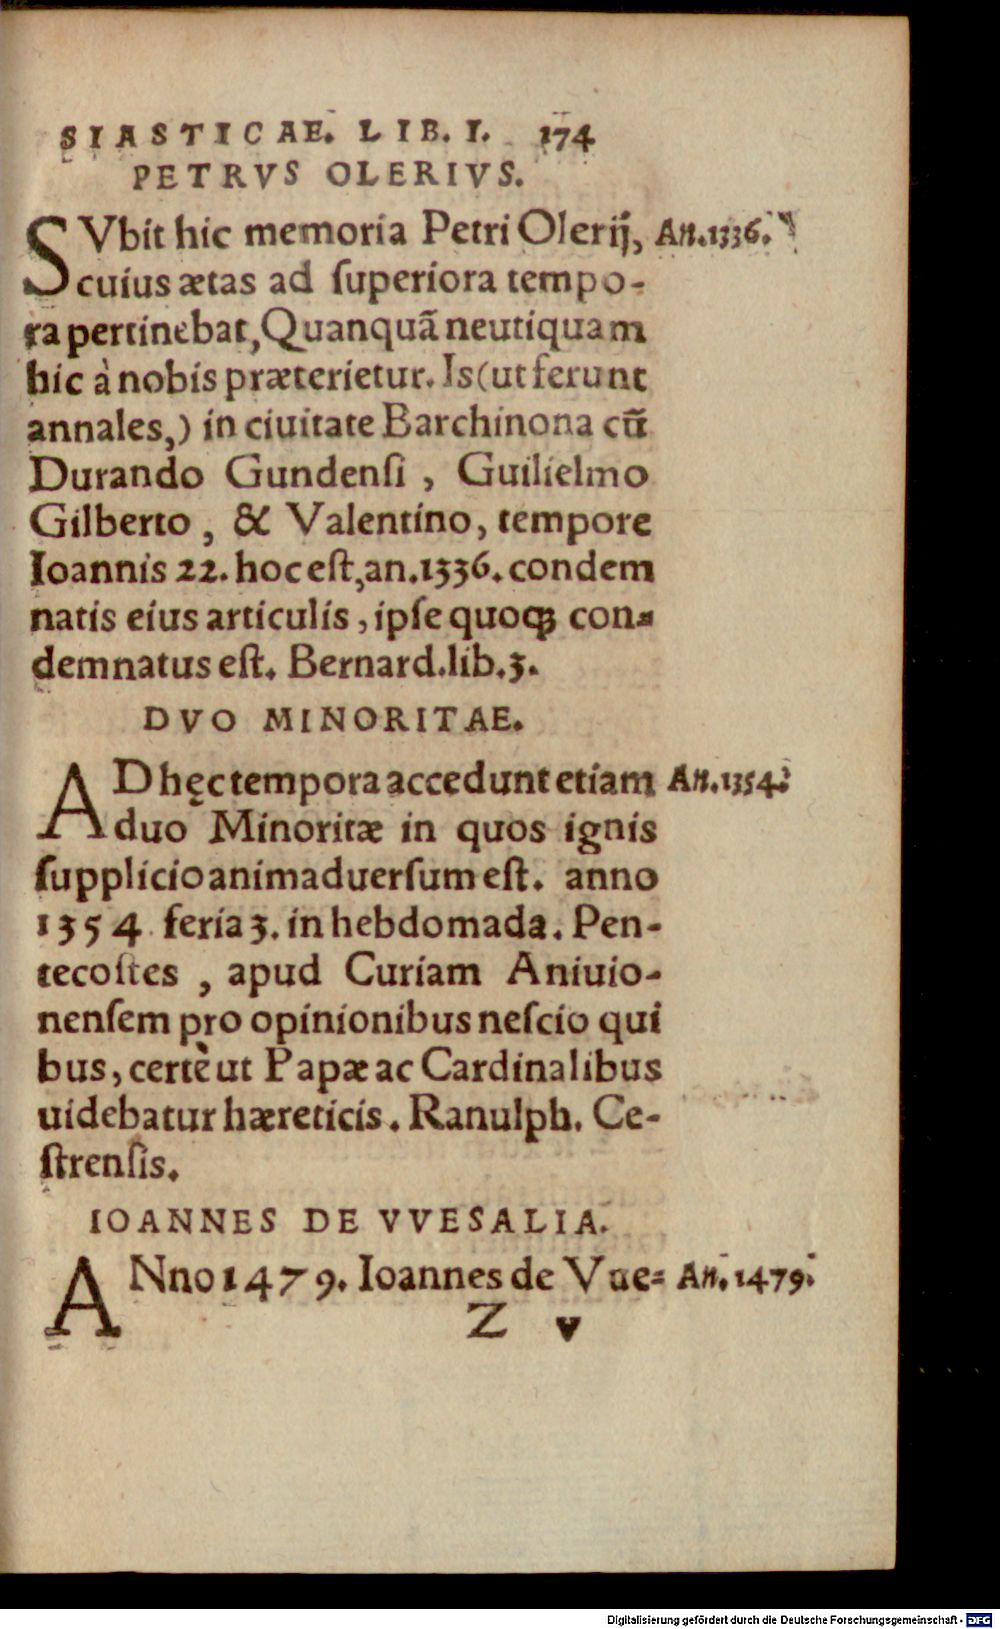 SIASTICAE. LIB. I. 174
PETRVS OLERIVS.
SVbit hic memoria Petri Olerij, An.1336.
cuius ætas ad ſuperiora tempo-
ra pertinebat, Quanquã neutiquam
hic à nobis præterietur. Is (ut ferunt
annales,) in ciuitate Barchinona cũ
Durando Gundenſi, Guilielmo
Gilberto, & Valentino, tempore
Ioannis 22. hoc eſt, an.1336. condem
natis eius articulis, ipſe quoqꝫ con-
demnatus eſt. Bernard.lib.3.
DVO MINORITAE.
AD hęc tempora accedunt etiam An.1354.
duo Minoritæ in quos ignis
ſupplicio animaduerſum eſt. anno
1354 feria 3. in hebdomada. Pen-
tecoſtes, apud Curiam Aniuio-
nenſem pro opinionibus neſcio qui
bus, certè ut Papæ ac Cardinalibus
uidebatur hæreticis. Ranulph. Ce-
ſtrenſis.
IOANNES DE VVESALIA.
ANno 1479. Ioannes de Vue= An. 1479.
Z v
Digitalisierung gefördert durch die Deutsche Forschungsgemeinschaft - DFG